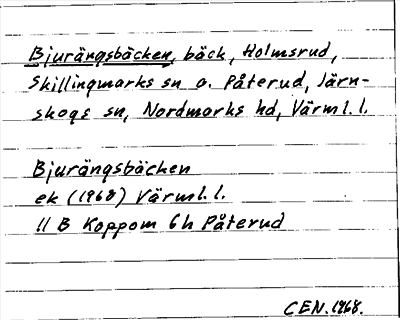 Bjurängsbäcken, bäck, Holmsrud,
Skillingmarks sn o. Påterud, Järn-
skogs sn, Nordmarks hd, Värml. l.
Bjurängsbäcken
ek (1968) Värml. l.
11 B Koppom 6h Påterud
CEN. 1968.